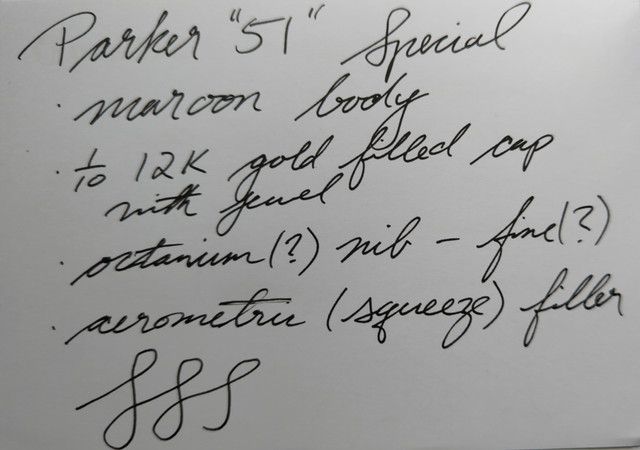 Parker "51" Special
· maroon body
1/10 12K gold filled cap
with jewel
· octanium(?) nib - fine(?)
· aerometric (squeeze) filler